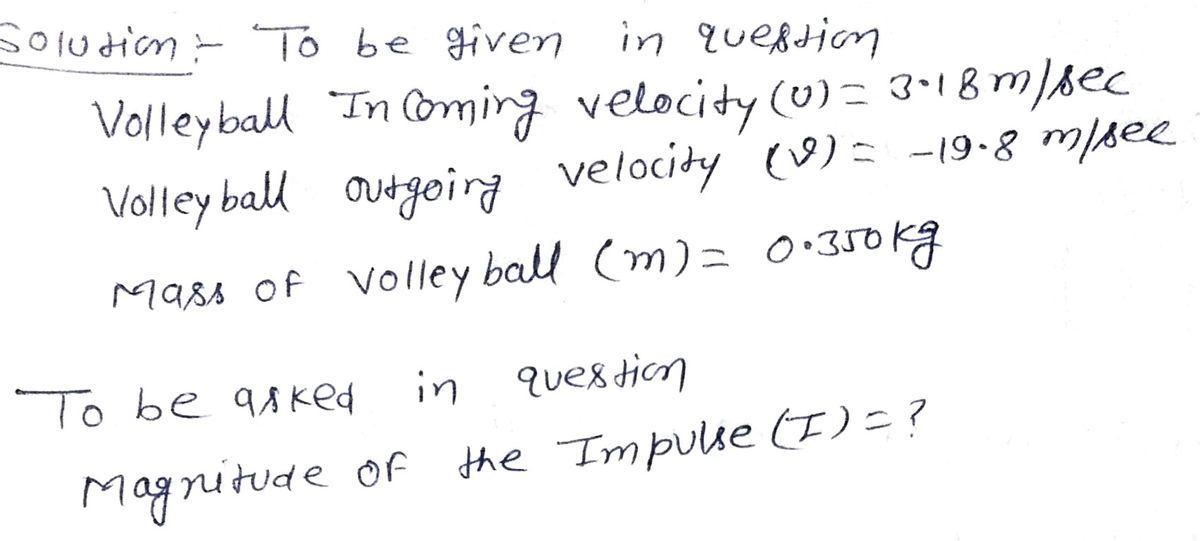 Solution:- To be given in question
Volleyball In Coming velocity (u) = 3.18 m/sec
Volleyball outgoing velocity (v) = -19.8 m/sec
Mass of volleyball (m) = 0.350 kg
To be asked in question
Magnitude of the Impulse (I) = ?